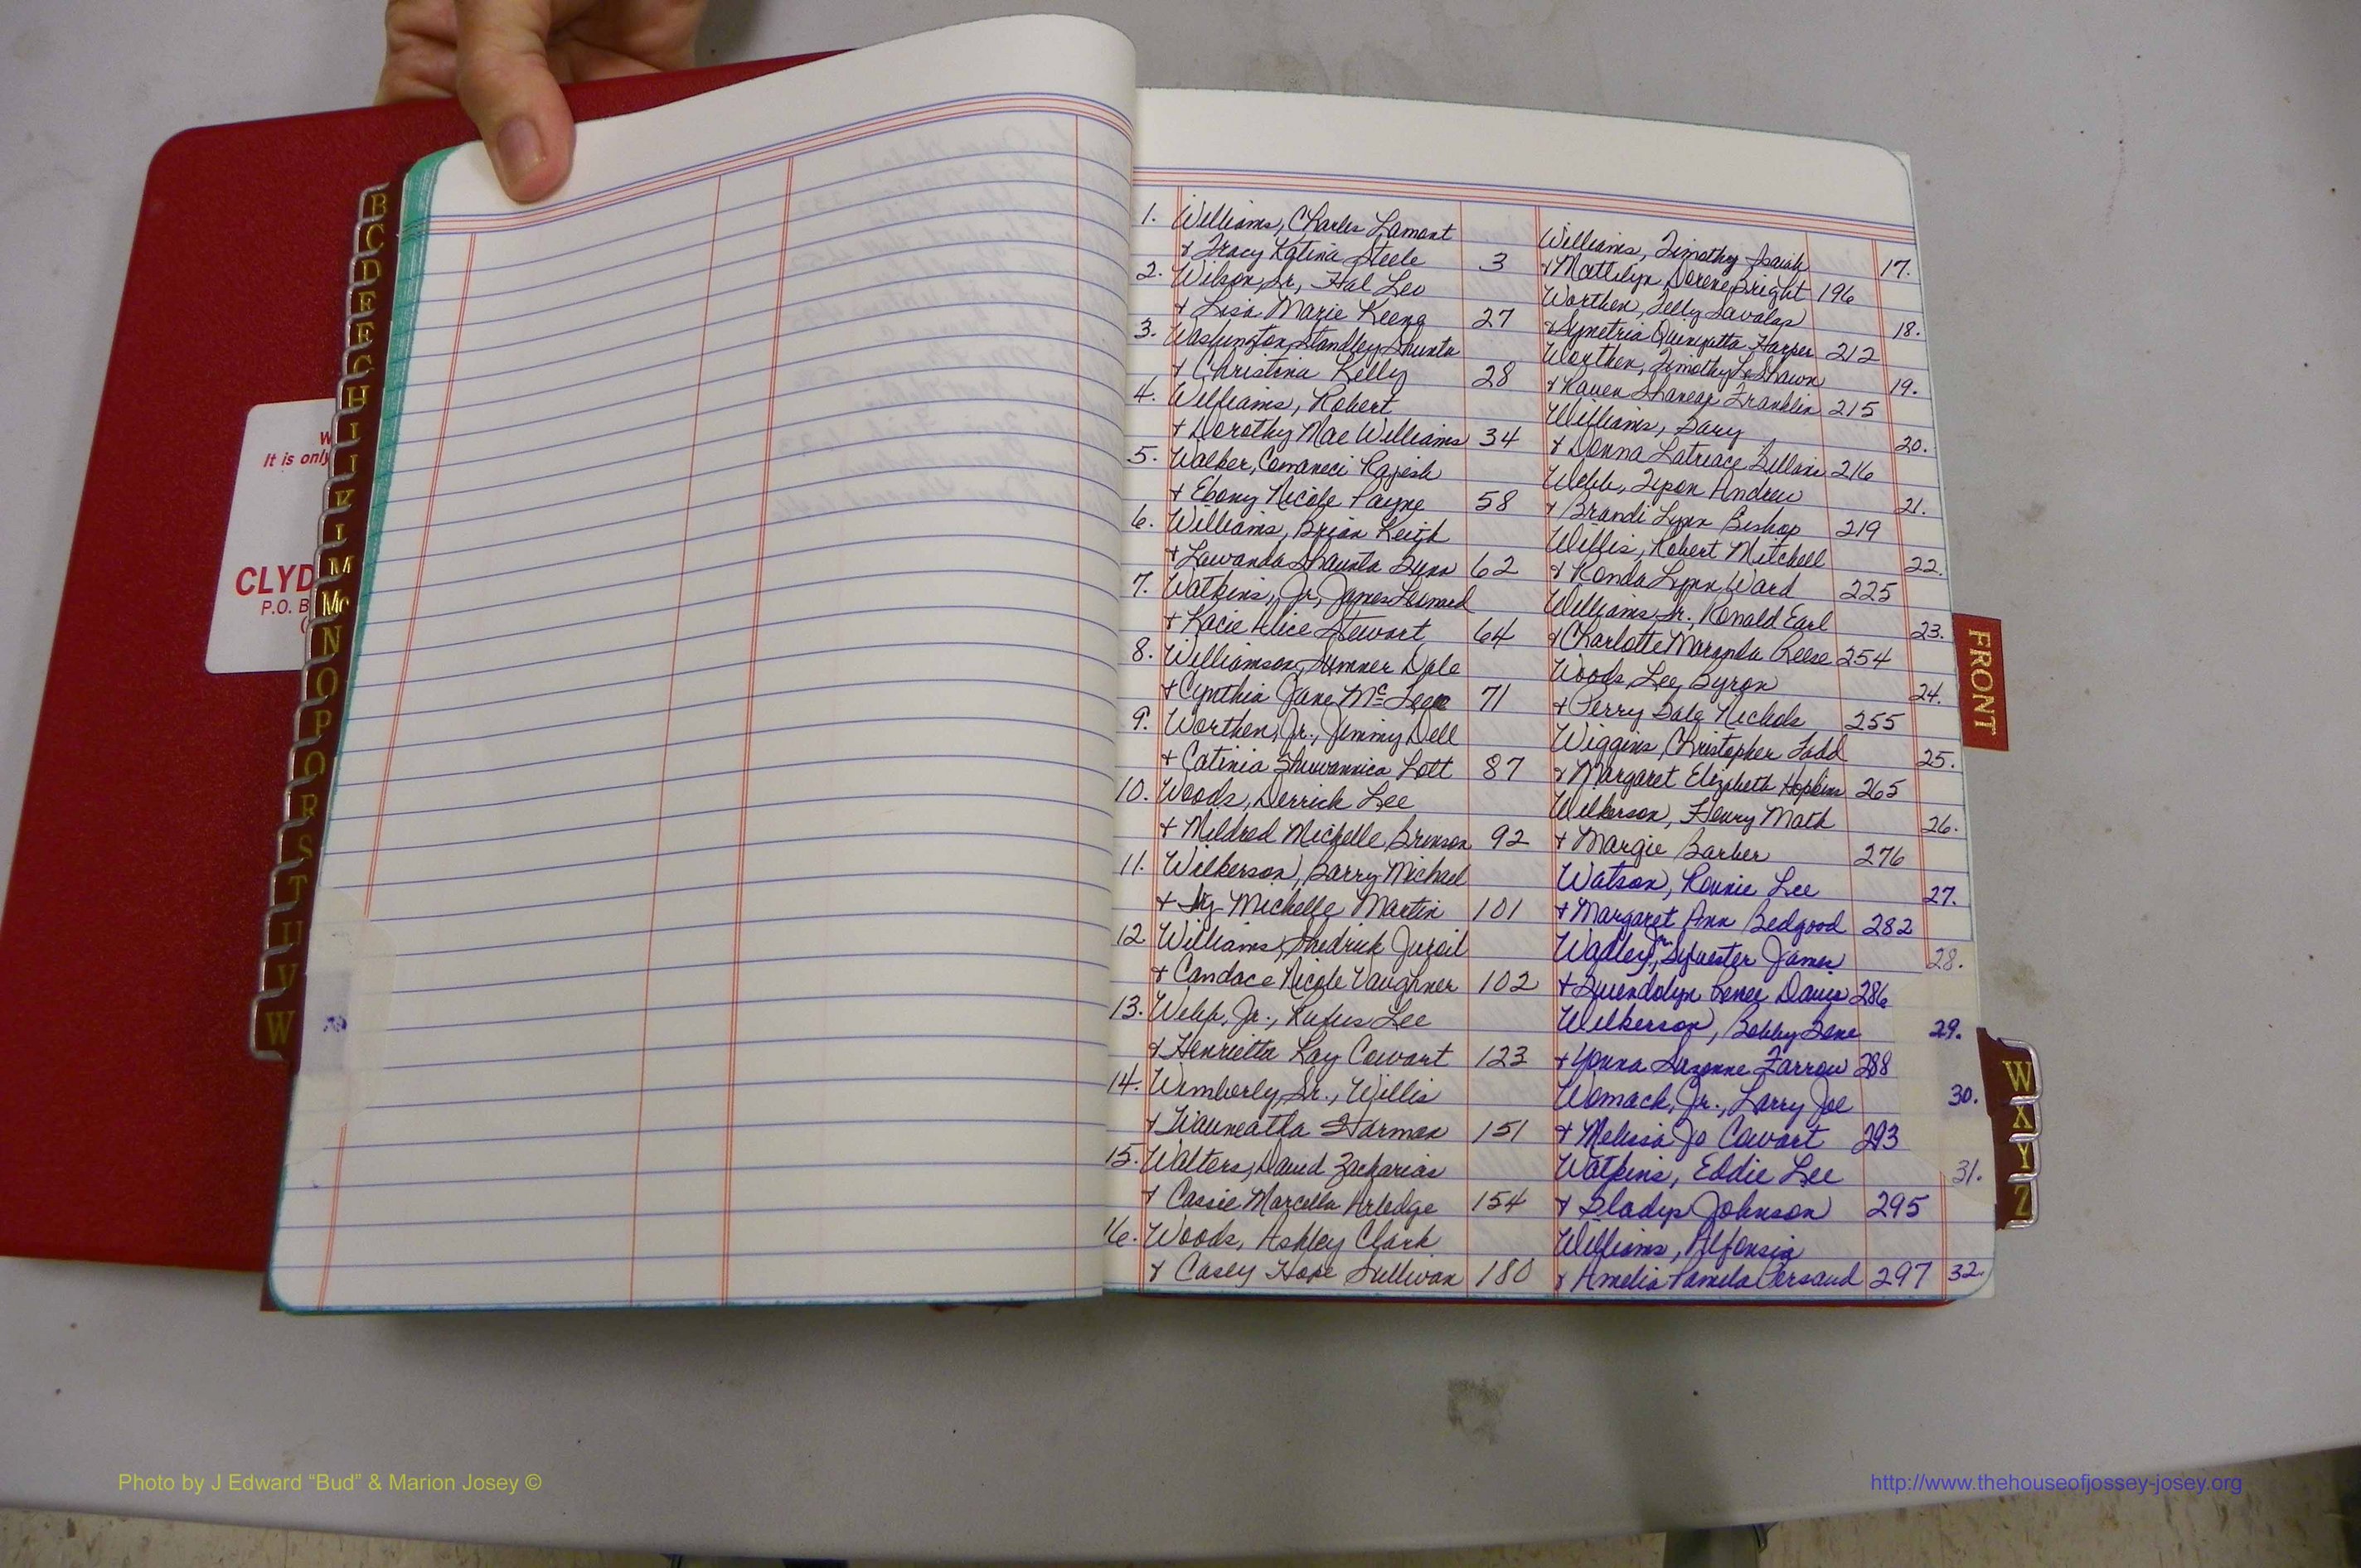 B
C
D
E
F
G
H
I
J
K
L
M
Mc
N
O
P
Q
R
S
T
U
V
W
W
It is only
CLYD
P.O. B
(
1. Williams, Charles Lamont
& Tracy Katina Steele 3
2. Wilson, Sr, Hal Leo
& Lisa Marie Keena 27
3. Washington, Standley Shunta
& Christina Kelly 28
4. Williams, Robert
& Dorothy Mae Williams 34
5. Walker, Comaneci Rajesh
& Ebony Nicole Payne 58
6. Williams, Brian Keith
& Lawanda Shaunta Gunn 62
7. Watkins, Jr, James Leonard
& Kacie Alice Stewart 64
8. Williamson, Sumner Dale
& Cynthia Jane Mc 71
9. Worthen, Jr., Jimmy Dell
& Catinia Lott 87
10. Woods, Derrick Lee
& Mildred Michelle Brinson 92
11. Wilkerson, Barry Michael
& Michelle Martin 101
12 Williams, Shedrick
& Candace Nicole Vaughner 102
13. Webb, Jr., Rufus Lee
& Henrietta Kay Cowart 123
14. Wimberly, Sr., Willis
& Harmon 151
15. Walters, David Zacharias
& Cassie Marcella Arledge 154
16. Woods, Ashley Clark
& Casey Hope Sullivan 180
Williams, Timothy Isaiah 17.
& Mattilyn Dorene Bright 196
Worthen, Telly Savalas 18.
& Symetria Harper 212
Worthen, Timothy LeShawn 19.
& Raven Franklin 215
Williams, Gary 20.
& Donna Latreace 216
Webb, Andrew 21.
& Brandi Lynn Bishop 219
Willis, Robert Mitchell 22.
& Ronda Lynn Ward 225
Williams, Sr., Ronald Earl 23.
& Charlotte Maranda Reese 254
Woods, Lee Byron 24.
& Perry Gale Nichols 255
Wiggins, Christopher Todd 25.
& Margaret Elizabeth Hopkins 265
Wilkerson, Henry Math 26.
& Margie Barber 276
Watson, Ronnie Lee 27.
& Margaret Ann Bedgood 282
Wadley, Jr., Sylvester James 28.
& Gwendolyn Renee Davis 286
Wilkerson, Bobby Gene 29.
& Yonna Suzanne Farrow 288
Womack, Jr., Larry Joe 30.
& Melissa Jo Cowart 293
Watkins, Eddie Lee 31.
& Gladys Johnson 295
Williams, Alfonsia
& Amelia Pamela Persaud 297 32.
FRONT
W
X
Y
Z
Photo by J Edward “Bud” & Marion Josey ©
http://www.thehouseofjossey-josey.org